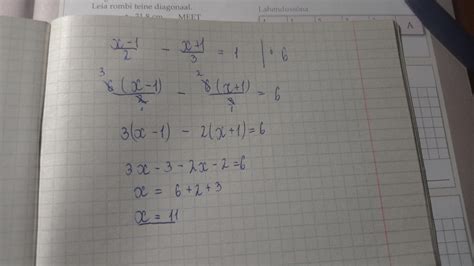 Leia rombi teine diagonaal.
Lahendussõna
A
(x-1)/2 - (x+1)/3 = 1 | · 6
6(x-1)/2 - 6(x+1)/3 = 6
3(x-1) - 2(x+1)=6
3x - 3 - 2x - 2 = 6
x = 6 + 2 + 3
x = 11